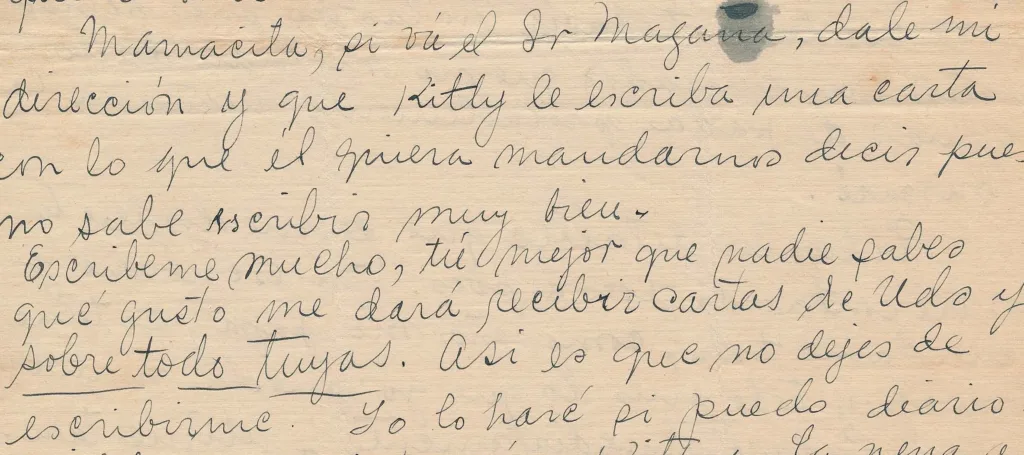 Mamacita, si vá el Sr Magaña, dale mi
dirección y que Kitty le escriba una carta
con lo que él quiera mandarnos decir pues
no sabe escribir muy bien.
Escribeme mucho, tú mejor que nadie sabes
qué gusto me dará recibir cartas de Uds y
sobre todo tuyas. Asi es que no dejes de
escribirme. Yo lo haré si puedo diario.
La nena